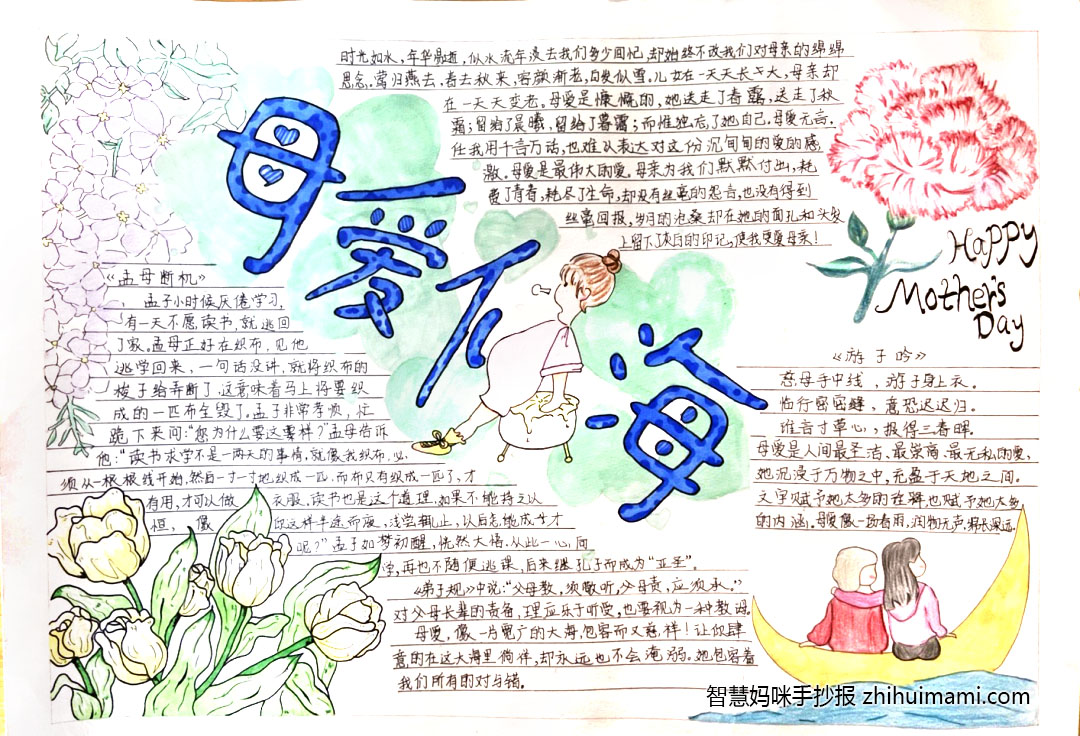 母爱如海
时光如水，年华易逝，似水流年淡去我们多少回忆，却始终不改我们对母亲的绵绵
思念。莺归燕去，春去秋来，容颜渐老，白发似雪。儿女在一天天长大，母亲却
在一天天变老。母爱是慷慨的，她送走了春露，送走了秋
霜；留给了晨曦，留给了暮霭；而惟独忘了她自己。母爱无言，
任我用千言万语，也难以表达对这份沉甸甸的爱的感
激。母爱是最伟大的爱。母亲为我们默默付出，耗
费了青春，耗尽了生命，却没有丝毫的怨言，也没有得到
丝毫回报，岁月的沧桑却在她的面孔和头发
上留下了灰白的印记，使我更爱母亲！
Happy
Mother's
Day
《孟母断机》
孟子小时候厌倦学习，
有一天不愿读书，就逃回
了家。孟母正好在织布，见他
逃学回来，一句话没讲，就将织布的
梭子给弄断了，这意味着马上将要织
成的一匹布全毁了。孟子非常孝顺，忙
跪下来问：“您为什么要这要样？”孟母告诉
他：“读书求学不是一两天的事情，就像我织布，必
须从一根根线开始，然后一寸寸地织成一匹，而布只有织成一匹了，才
有用，才可以做衣服。读书也是这个道理，如果不能持之以
恒，像你这样半途而废，浅尝辄止，以后怎能成才
呢？”孟子如梦初醒，恍然大悟。从此一心向
学，再也不随便逃课，后来继孔子而成为“亚圣”。
《弟子规》中说：“父母教，须敬听，父母责，应须承。”
对父母长辈的责备，理应乐于听受，也要视为一种教诲。
母爱，像一片宽广的大海，包容而又慈祥！让你肆
意的在这大海里徜徉，却永远也不会淹溺。她包容着
我们所有的对与错。
《游子吟》
慈母手中线，游子身上衣。
临行密密缝，意恐迟迟归。
谁言寸草心，报得三春晖。
母爱是人间最圣洁、最崇高、最无私的爱，
她沉浸于万物之中，充盈于天地之间。
文字赋予她太多的注释也赋予她太多
的内涵，母爱像一场春雨，润物无声，绵长深远。
智慧妈咪手抄报 zhihuimami.com